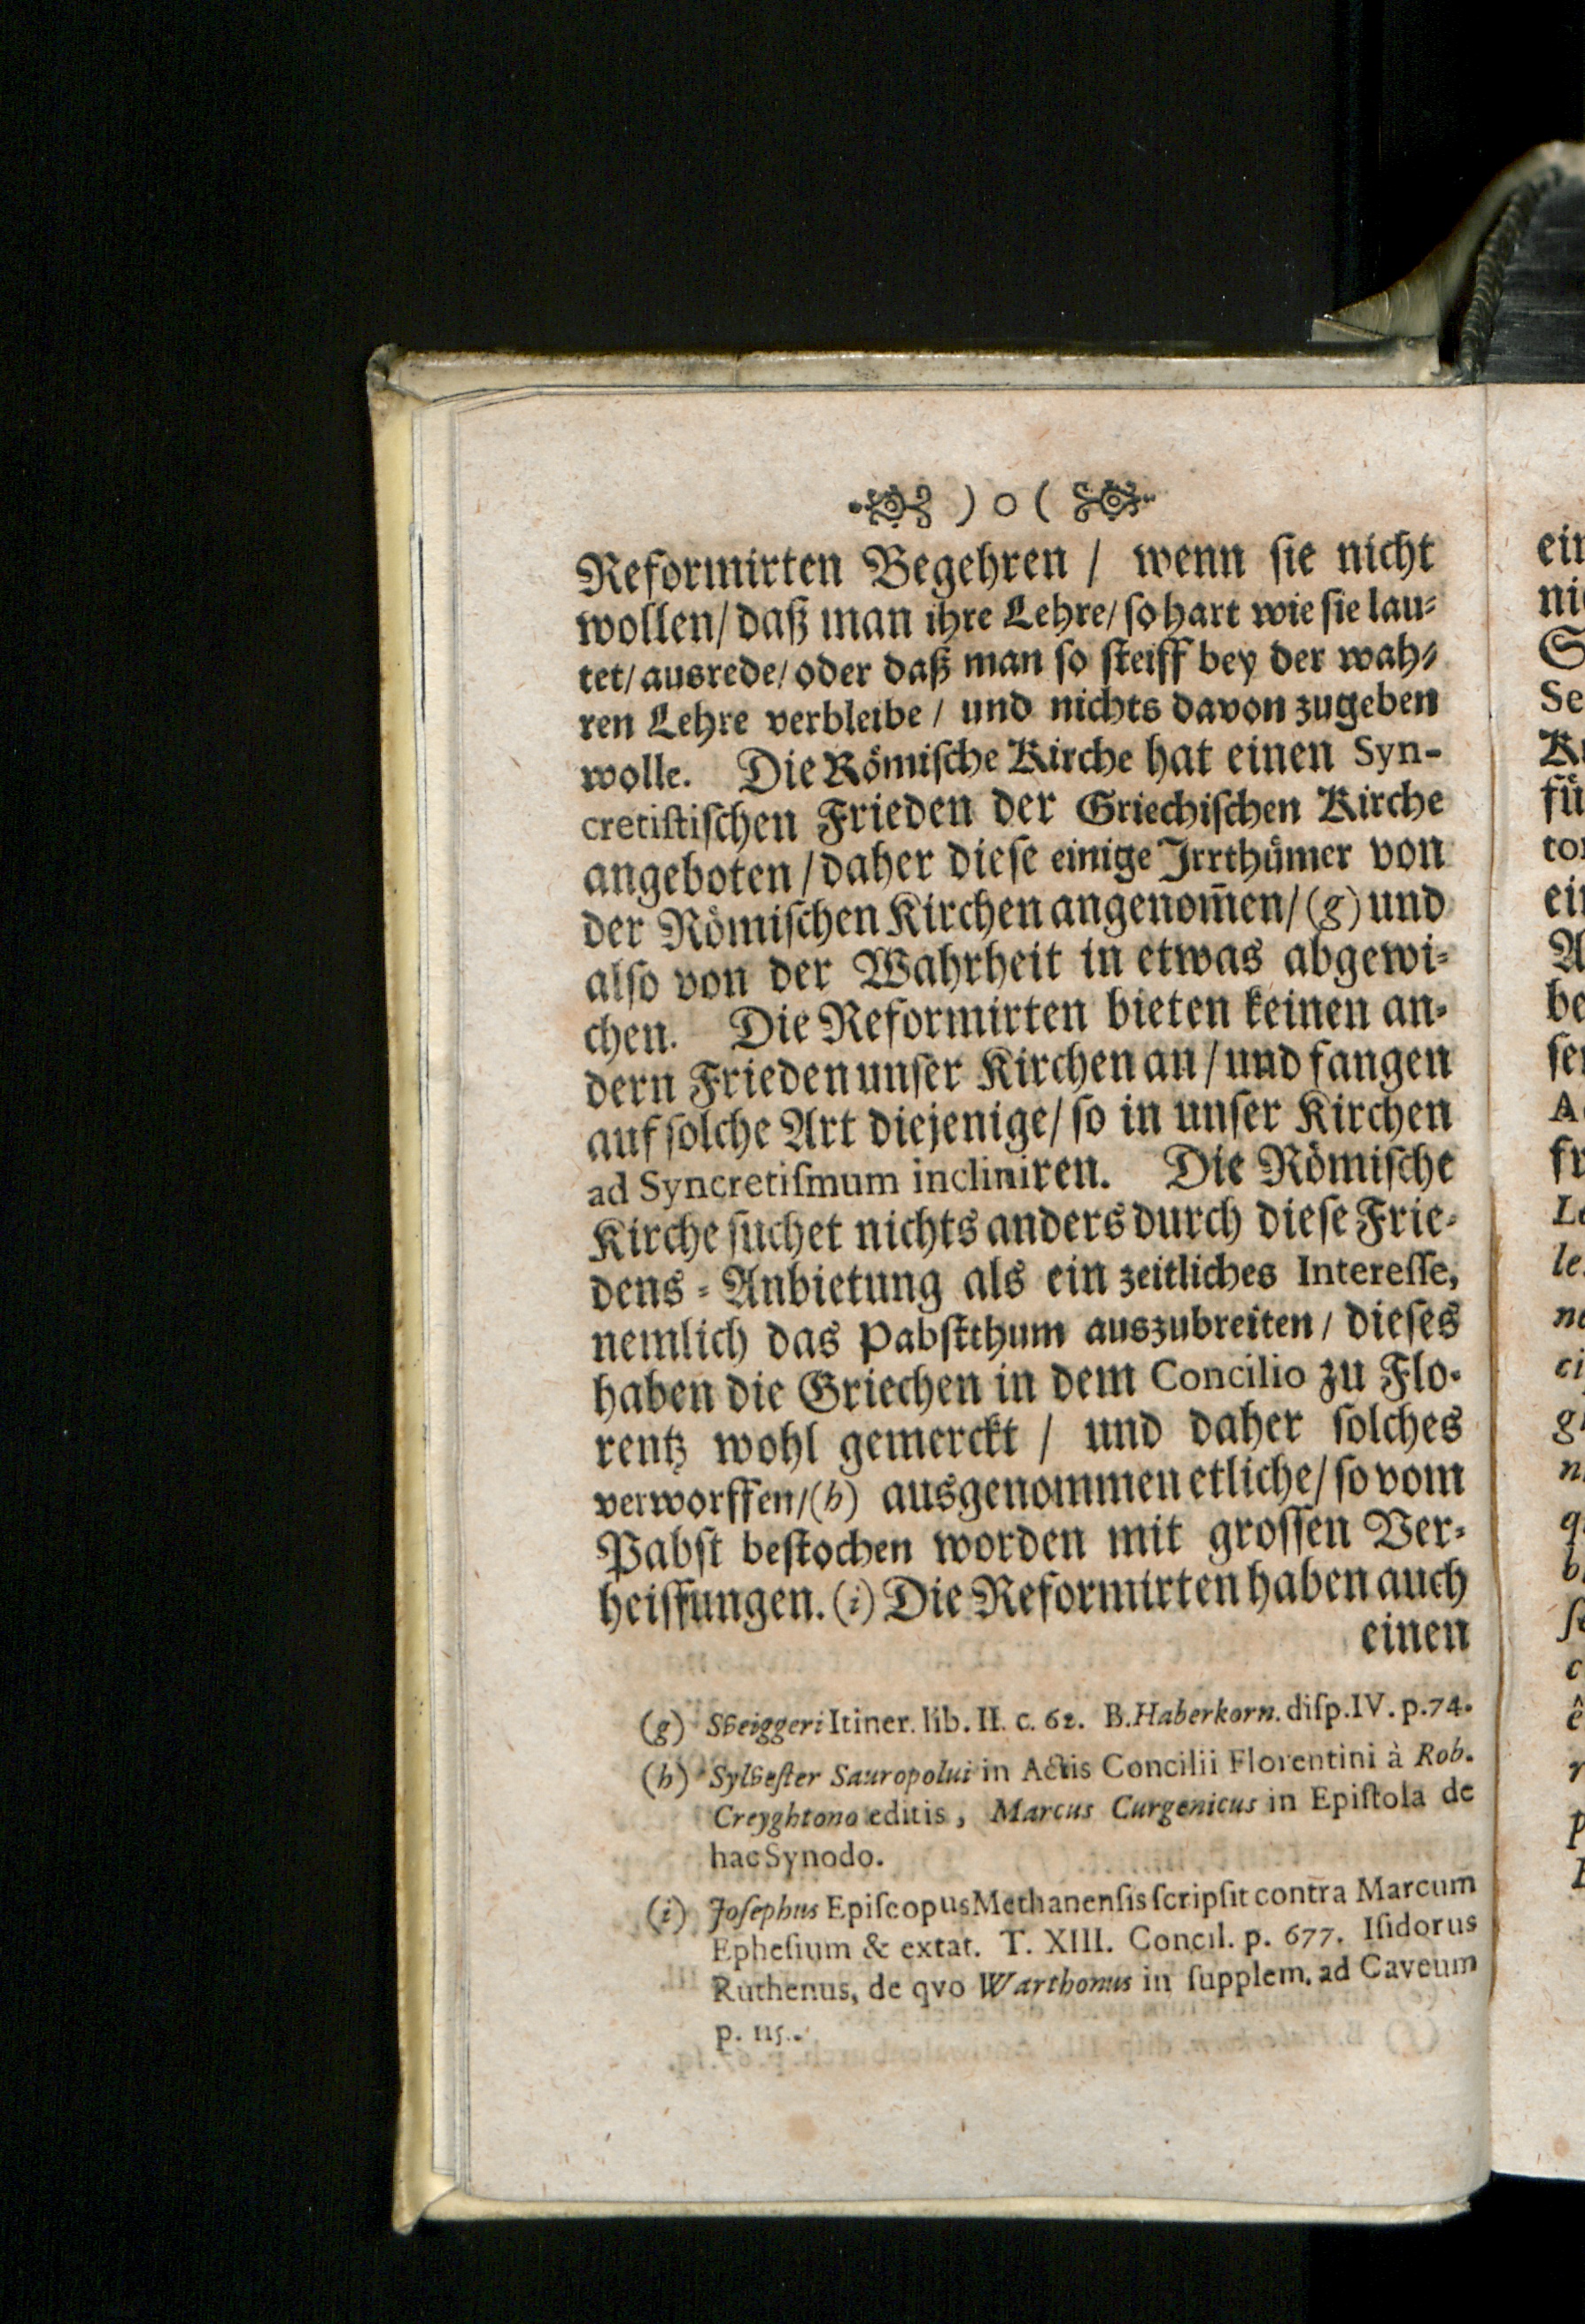 ) o (
Reformirten Begehren / wenn ſie nicht
wollen/ daß man ihre Lehre/ ſo hart wie ſie lau⸗
tet/ ausrede/ oder daß man ſo ſteiff bey der wah⸗
ren Lehre verbleibe / und nichts davon zugeben
wolle. Die Römiſche Kirche hat einen Syn-
cretiſtiſchen Frieden der Griechiſchen Kirche
angeboten / daher dieſe einige Irrthümer von
der Römiſchen Kirchen angenom̃en/ (g) und
alſo von der Wahrheit in etwas abgewi⸗
chen. Die Reformirten bieten keinen an⸗
dern Frieden unſer Kirchen an / und fangen
auf ſolche Art diejenige/ ſo in unſer Kirchen
ad Syncretiſmum incliniren. Die Römiſche
Kirche ſuchet nichts anders durch dieſe Frie⸗
dens⸗Anbietung als ein zeitliches Intereſſe,
nemlich das Pabſtthum auszubreiten / dieſes
haben die Griechen in dem Concilio zu Flo⸗
rentz wohl gemerckt / und daher ſolches
verworffen/(h) ausgenommen etliche/ ſo vom
Pabſt beſtochen worden mit groſſen Ver⸗
heiſſungen. (i) Die Reformirten haben auch
einen
(g) Sveiggeri Itiner. lib. II. c. 62. B. Haberkorn. diſp. IV. p. 74.
(h) Sylveſter Sauropolui in Actis Concilii Florentini à Rob.
Creyghtono editis, Marcus Curgenicus in Epiſtola de
hac Synodo.
(i) Joſephus Epiſcopus Methanenſis ſcripſit contra Marcum
Epheſium & extat. T. XIII. Concil. p. 677. Iſidorus
Ruthenus, de qvo Warthonus in ſupplem. ad Caveum
p. 115.